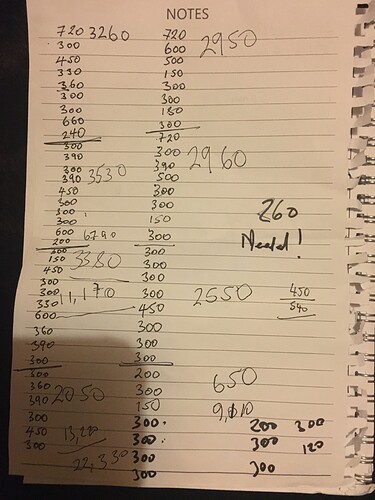 NOTES
720 3260 720 2950
300 600
450 500
330 150
360 300
300 300
300 150
660 300
240 720
300 300 2960
390 390
300 500
390 3530 300
450 300
300 150
300
300
600 6790 300
200 300
150 3380 300
450 300
300 300
300 11,170 300 2550 450
330 450 540
600 300
360 300
390 300
300 300
300 200
360 300 650
390 2050 150 9,010
300 300 200 300
450 13,220 300 300 120
300 22,330 300 300
300
260
Needed!